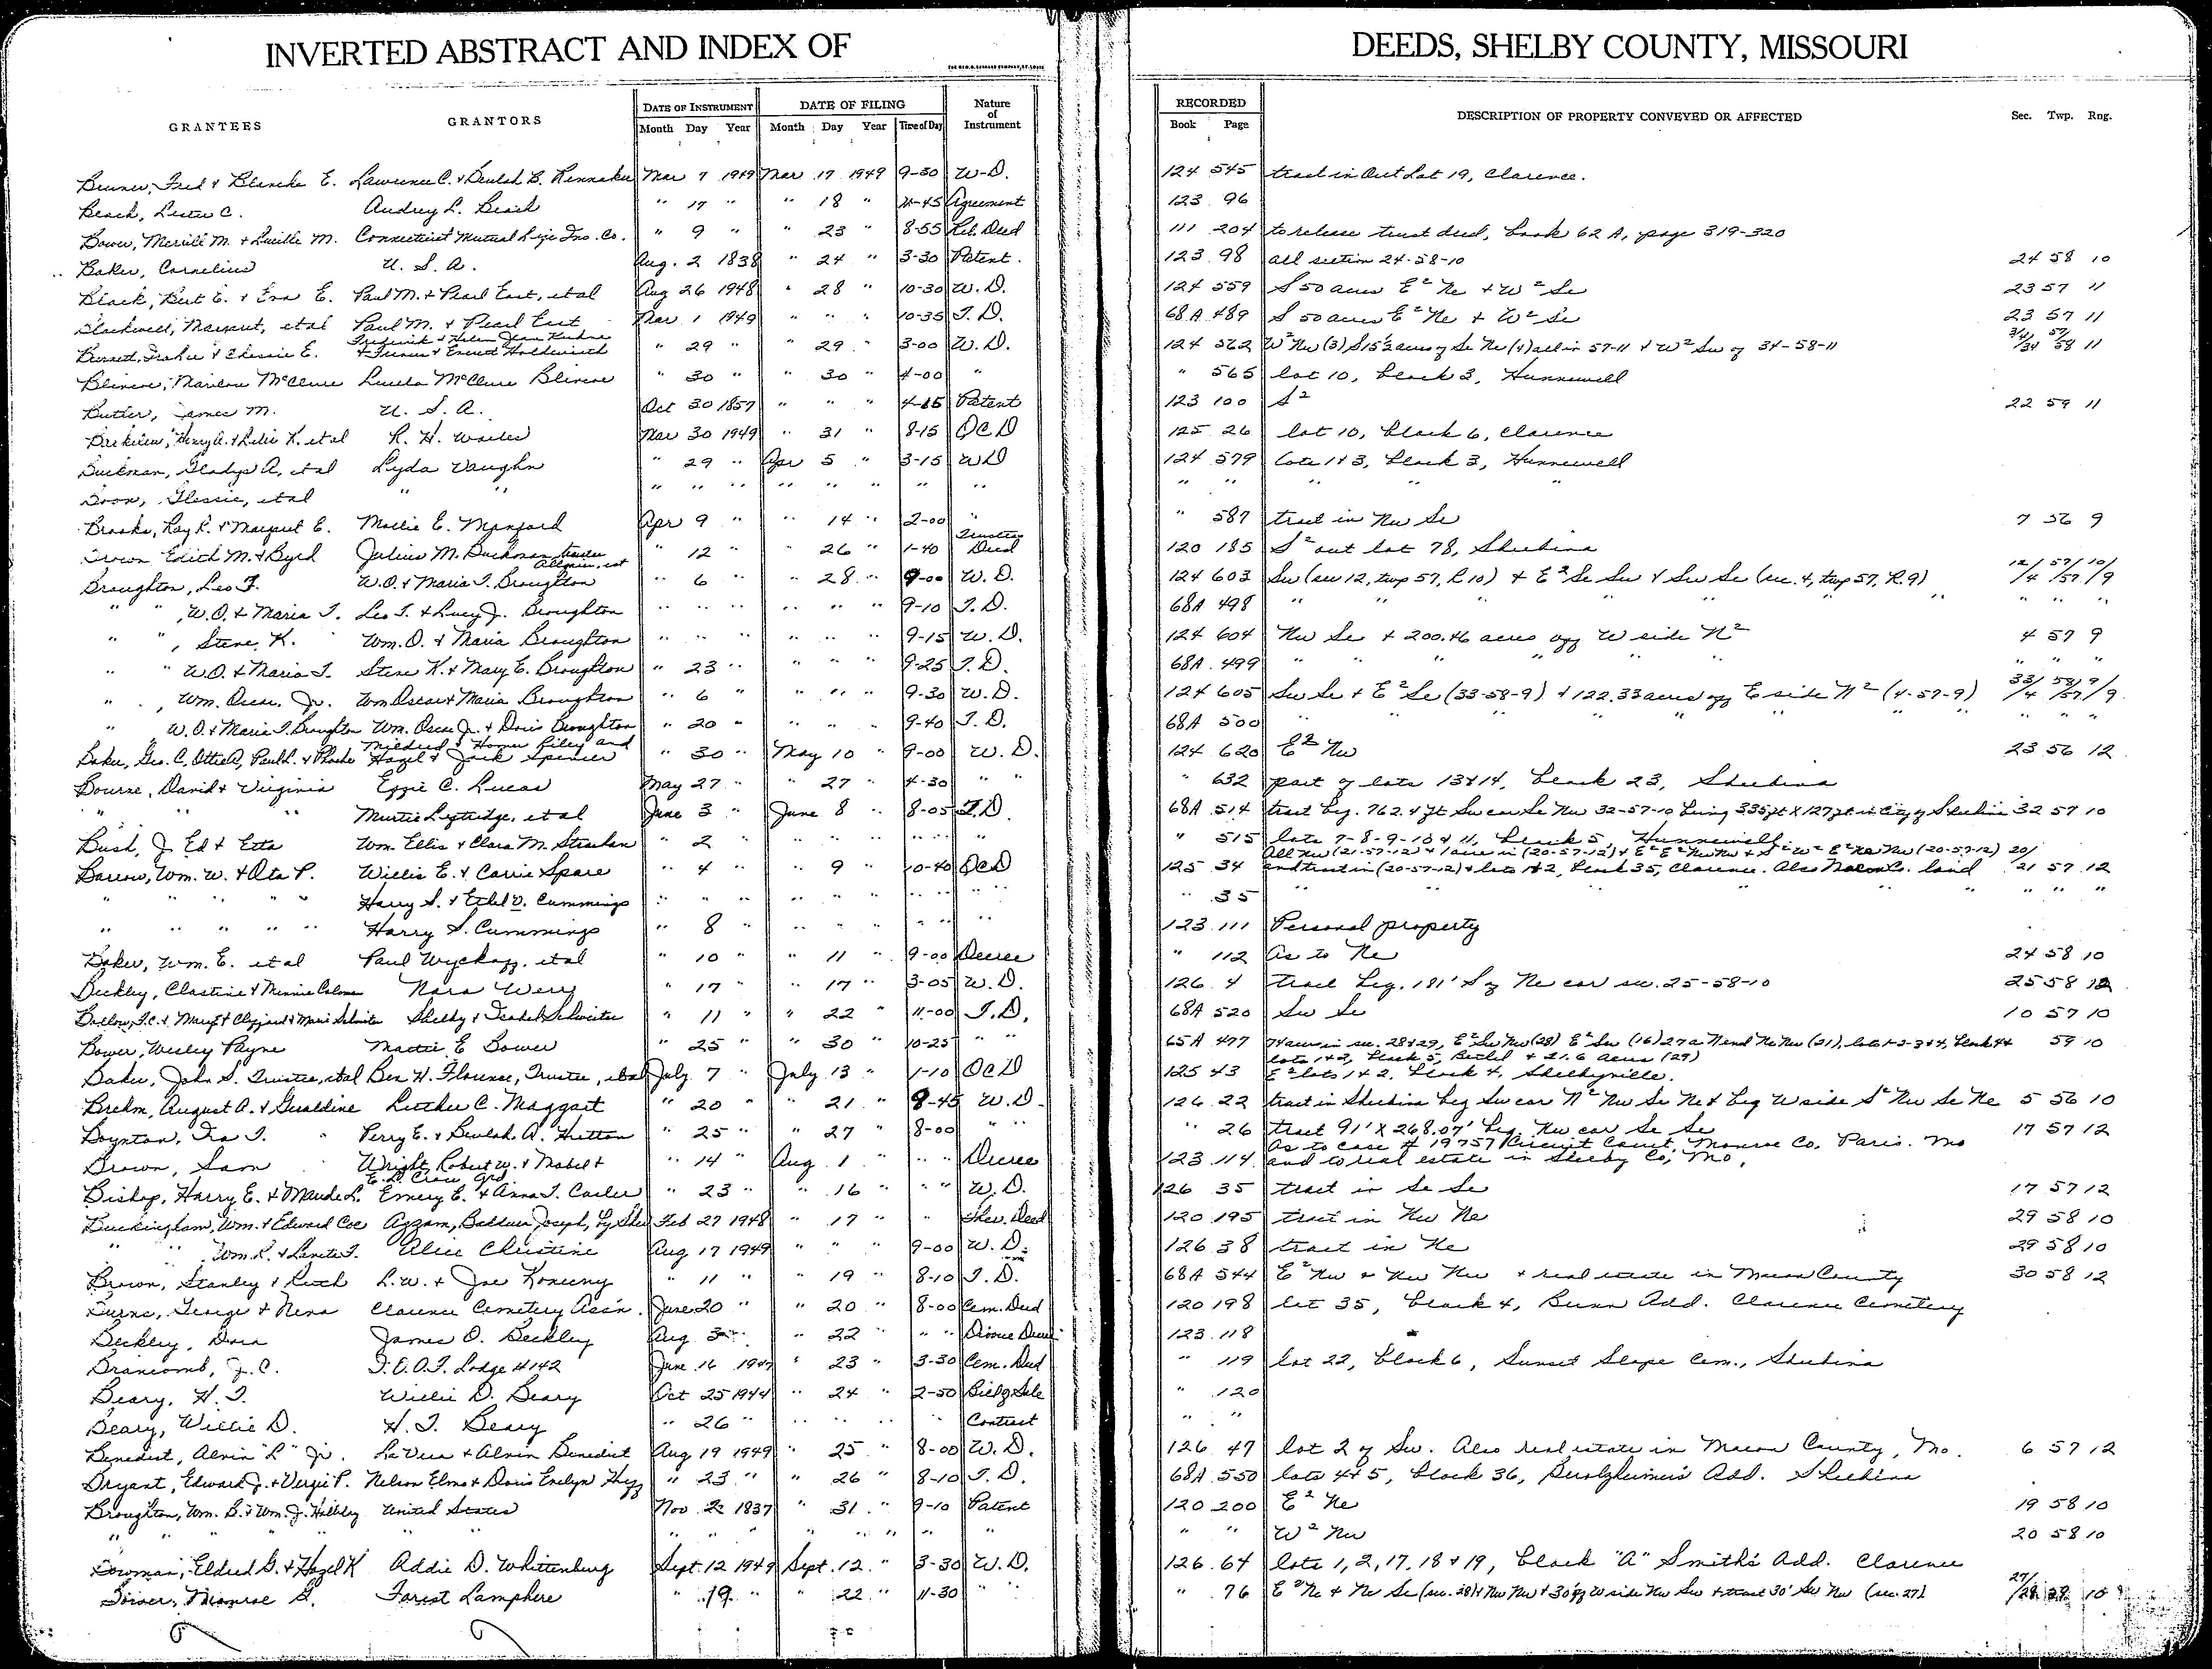 INVERTED ABSTRACT AND INDEX OF DEEDS, SHELBY COUNTY, MISSOURI
GRANTEES GRANTORS DATE OF INSTRUMENT DATE OF FILING Nature of Instrument RECORDED DESCRIPTION OF PROPERTY CONVEYED OR AFFECTED Sec. Twp. Rng.
Month Day Year Month Day Year Time of Day Book Page
Fred & Blanche E. Lawrence C. & Beulah B. Mar 7 1949 Mar 17 1949 9-30 W-D. 124 545 tract in Out Lot 19, Clarence.
Beach, Lester C. Audrey L. Beach " 17 " " 18 " Agreement 123 96
Bower, Merrill M. & Lucille M. Connecticut Mutual Life Ins. Co. " 9 " " 23 " 8-55 Rel. Deed 111 204 to release trust deed, book 62 A, page 319-320
Baker, Cornelius U. S. A. Aug. 2 1838 " 24 " 3-30 Patent. 123 98 all section 24-58-10 24 58 10
Black, Burt E. & Eva E. Paul M. & Pearl East, et al Aug 26 1948 " 28 " 10-30 W. D. 124 559 S 50 acres E² Ne & W² Se 23 57 11
Blackwell, Margaret, et al Paul M. & Pearl East Mar 1 1949 " " " 10-35 T. D. 68A 489 S 50 acres E² Ne & W² Se 23 57 11
" 29 " " 29 " 3-00 W. D. 124 562 W² Nw (3) S 15½ acres of Se Ne (4) all in 57-11 & W² Sw of 34-58-11
McClure Luella McClure " 30 " " 30 " 4-00 " " 565 lot 10, block 3, Hunnewell
Butler, James M. U. S. A. Oct 30 1857 " " " Patent 123 100 S² 22 59 11
Henry A. & Lelie K. et al R. H. Wailes Mar 30 1949 " 31 " 8-15 QCD 125 26 lot 10, block 6, Clarence
Buckman, Gladys A, et al Lyda Vaughn " 29 " Apr 5 " 3-15 WD 124 579 lots 1 & 3, block 3, Hunnewell
Boon, Flessie, et al " " " " " " " " " " " " " " " "
Brooks, Ray R. & Margaret E. Mollie E. Apr 9 " " 14 " 2-00 " " 587 tract in Nw Se 7 56 9
Brown Edith M. & Byrd Julius M. Buckman, trustee " 12 " " 26 " 1-40 Trustees Deed 120 185 S² out lot 78, Shelbina
Broughton, Leo T. W.O. & Maria T. Broughton " 6 " " 28 " 9-00 W. D. 124 603 Sw (sec 12, twp 57, R 10) & E² Se Sw & Sw Se (sec. 4, twp 57, R. 9) 12/4 57/57 10/9
" ", W.O. & Maria T. Leo T. & Lucy J. Broughton " " " " " " 9-10 T. D. 68A 498 " " " " " " " "
" ", Steve K. Wm. O. & Maria Broughton " " " " " " 9-15 W. D. 124 604 Nw Se & 200.46 acres off W side N² 4 57 9
" " W.O. & Maria T. Steve K. & Mary E. Broughton " 23 " " " " 9-25 T. D. 68A 499 " " " " " " " "
" , Wm. Oscar, Jr. Wm Oscar & Maria Broughton " 6 " " " " 9-30 W. D. 124 605 Sw Se & E² Se (33-58-9) & 122.33 acres off E side N² (4-57-9) 33/4 58/57 9/9
" W.O. & Maria T. Broughton Wm. Oscar Jr. & Doris Broughton " 20 " " " " 9-40 T. D. 68A 500 " " " " " " " "
Baker, Geo. C, Ottie A, Paul L. & Phoebe Mildred & Homer Riley and Hazel & Jack Spencer " 30 " May 10 " 9-00 W. D. 124 620 E² Nw 23 56 12
Bourne, David & Virginia Effie C. Lucas May 27 " " 27 " 4-30 " " " 632 part of lots 13 & 14, block 23, Shelbina
" " " Myrtie Lyttridge, et al June 3 " June 8 " 8-05 T.D. 68A 514 tract beg. 762.4 ft Sw cor Se Nw 32-57-10 being 335 ft X 127 ft in City of Shelbina 32 57 10
Bush, J. Ed & Etta Wm. Ellis & Clara M. Strachan " 2 " " " " " " " 515 lots 7-8-9-10 & 11, block 5, Hunnewell
Barrow, Wm. W. & Ota P. Willis E. & Carrie Spare " 4 " " 9 " 10-40 QCD 125 34 All Nw (21-57-12) & 1 acre in (20-57-12) & E² E² Nw Nw & S² W² E² Ne Nw (20-57-12) 20/
and tract in (20-57-12) & lots 1 & 2, block 35, Clarence. Also Macon Co. land 21 57 12
" " " " Harry S. & Ethel V. Cummings " " " " " " " " " 35 " " " " " " " "
" " " " " Harry S. Cummings " 8 " " " " " " 123 111 Personal property
Baker, Wm. E. et al Paul Wyckoff, et al " 10 " " 11 " 9-00 Decree " 112 As to Ne 24 58 10
Beckley, Clastine & Minnie Nora Werr " 17 " " 17 " 3-05 W. D. 126 4 tract beg. 181' S of Ne cor sec. 25-58-10 25 58 10
Shelby & Isabel " 11 " " 22 " 11-00 T.D. 68A 520 Sw Se 10 57 10
Bower, Wesley Payne Mattie E Bower " 25 " " 30 " 10-25 " " 65A 477 74 acres in sec. 28 & 29, E² Sw Nw (28) E² Sw (16) 27 a N end Ne Nw (21), lots 1-2-3 & 4, block 44 59 10
lots 1 & 2, block 5, Bethel & 21.6 acres (29)
Baker, John S. Trustee, et al Ben H. Florence, Trustee, et al July 7 " July 13 " 1-10 QCD 125 43 E² lots 1 & 2, block 4, Shelbyville.
Brehm, August A. & Geraldine Luther C. Maggart " 20 " " 21 " 8-45 W.D. 126 22 tract in Shelbina beg Sw cor N² Nw Se Ne & beg W side S² Nw Se Ne 5 56 10
Boynton, Ira T. Perry E. & Beulah A. Hutton " 25 " " 27 " 8-00 " " " 26 tract 91' X 268.07' beg. Nw cor Se Se 17 57 12
Brown, Sam Wright, Robert W. & Mabel & " 14 " Aug 1 " " " Decree 123 114 As to case # 19757 Circuit Court, Monroe Co, Paris. Mo
and to real estate in Shelby Co, Mo.
Bishop, Harry E. & Maude L. Emery E. & Anna T. Carter " 23 " " 16 " " " W. D. 126 35 tract in Se Se 17 57 12
Buckingham, Wm. & Edward Coe Azzam, Baldwin Joseph, by Feb 27 1948 " 17 " " Sher. Deed 120 195 tract in Nw Ne 29 58 10
" " Wm. R. & Laneta T. Alice Christine Aug 17 1949 " " " 9-00 W. D. 126 38 tract in Ne 29 58 10
Brown, Stanley & Ruth L. W. & Joe Konicny " 11 " " 19 " 8-10 T. D. 68A 544 E² Nw & Nw Nw & real estate in Macon County 30 58 12
Burns, George & Nena Clarence Cemetery Ass'n. June 20 " " 20 " 8-00 Cem. Deed 120 198 lot 35, block 4, Bunn Add. Clarence Cemetery
Beckley, Dora James O. Beckley Aug 3 " " 22 " " " Divorce Decree 123 118
Branconb, J. C. I.O.O.F. Lodge #142 June 16 1947 " 23 " 3-30 Cem. Deed " 119 lot 22, block 6, Sunset Slope Cem., Shelbina
Beary, H. T. Willie D. Beary Oct 25 1944 " 24 " 2-50 Bill of Sale " 120
Beary, Willie D. H. T. Beary " 26 " " " " " Contract " "
Benedict, Alvin "L" Jr. LaVera & Alvin Benedict Aug 19 1949 " 25 " 8-00 W. D. 126 47 lot 2 of Sw. Also real estate in Macon County, Mo. 6 57 12
Bryant, Edward J. & Vergie P. Nelson Elmo & Doris Evelyn " 23 " " 26 " 8-10 T. D. 68A 550 lots 4 & 5, block 36, Add. Shelbina
Broughton, Wm. B. & Wm. J. Holliday United States Nov. 22 1837 " 31 " 9-10 Patent 120 200 E² Ne 19 58 10
" " " " " " " " " " " " " " " W² Nw 20 58 10
Bowman, Eldred G. & Hazel K Addie D. Whittenburg Sept. 12 1949 Sept. 12 " 3-30 W. D. 126 64 lots 1, 2, 17, 18 & 19, block "A" Smith's Add. Clarence
Bower, Monroe G. Forest Lamphere " 19 " " 22 " 11-30 " " 76 E² Ne & Ne Se (sec. 28) & Nw Nw & 30' off W side Nw Sw & tract 30' Sw Nw (sec. 27)